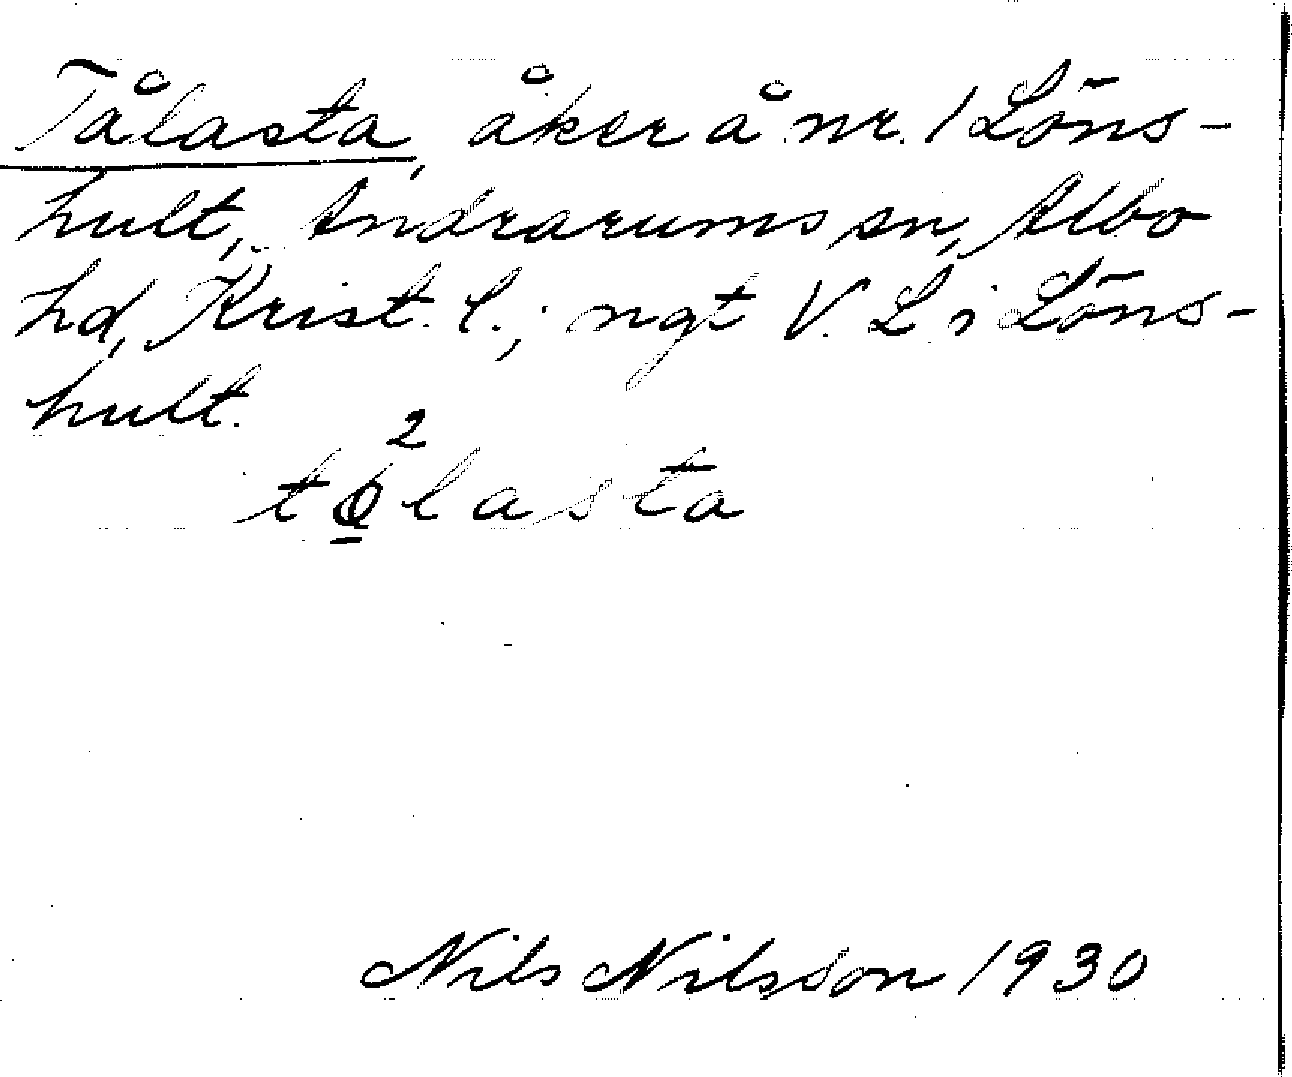 Tålasta, åker å nr. 1 Löns-
hult, Andrarums sn, Albo
hd, Krist. l.; ngt V. L i Löns-
hult.
2
tǫlasta
Nils Nilsson 1930